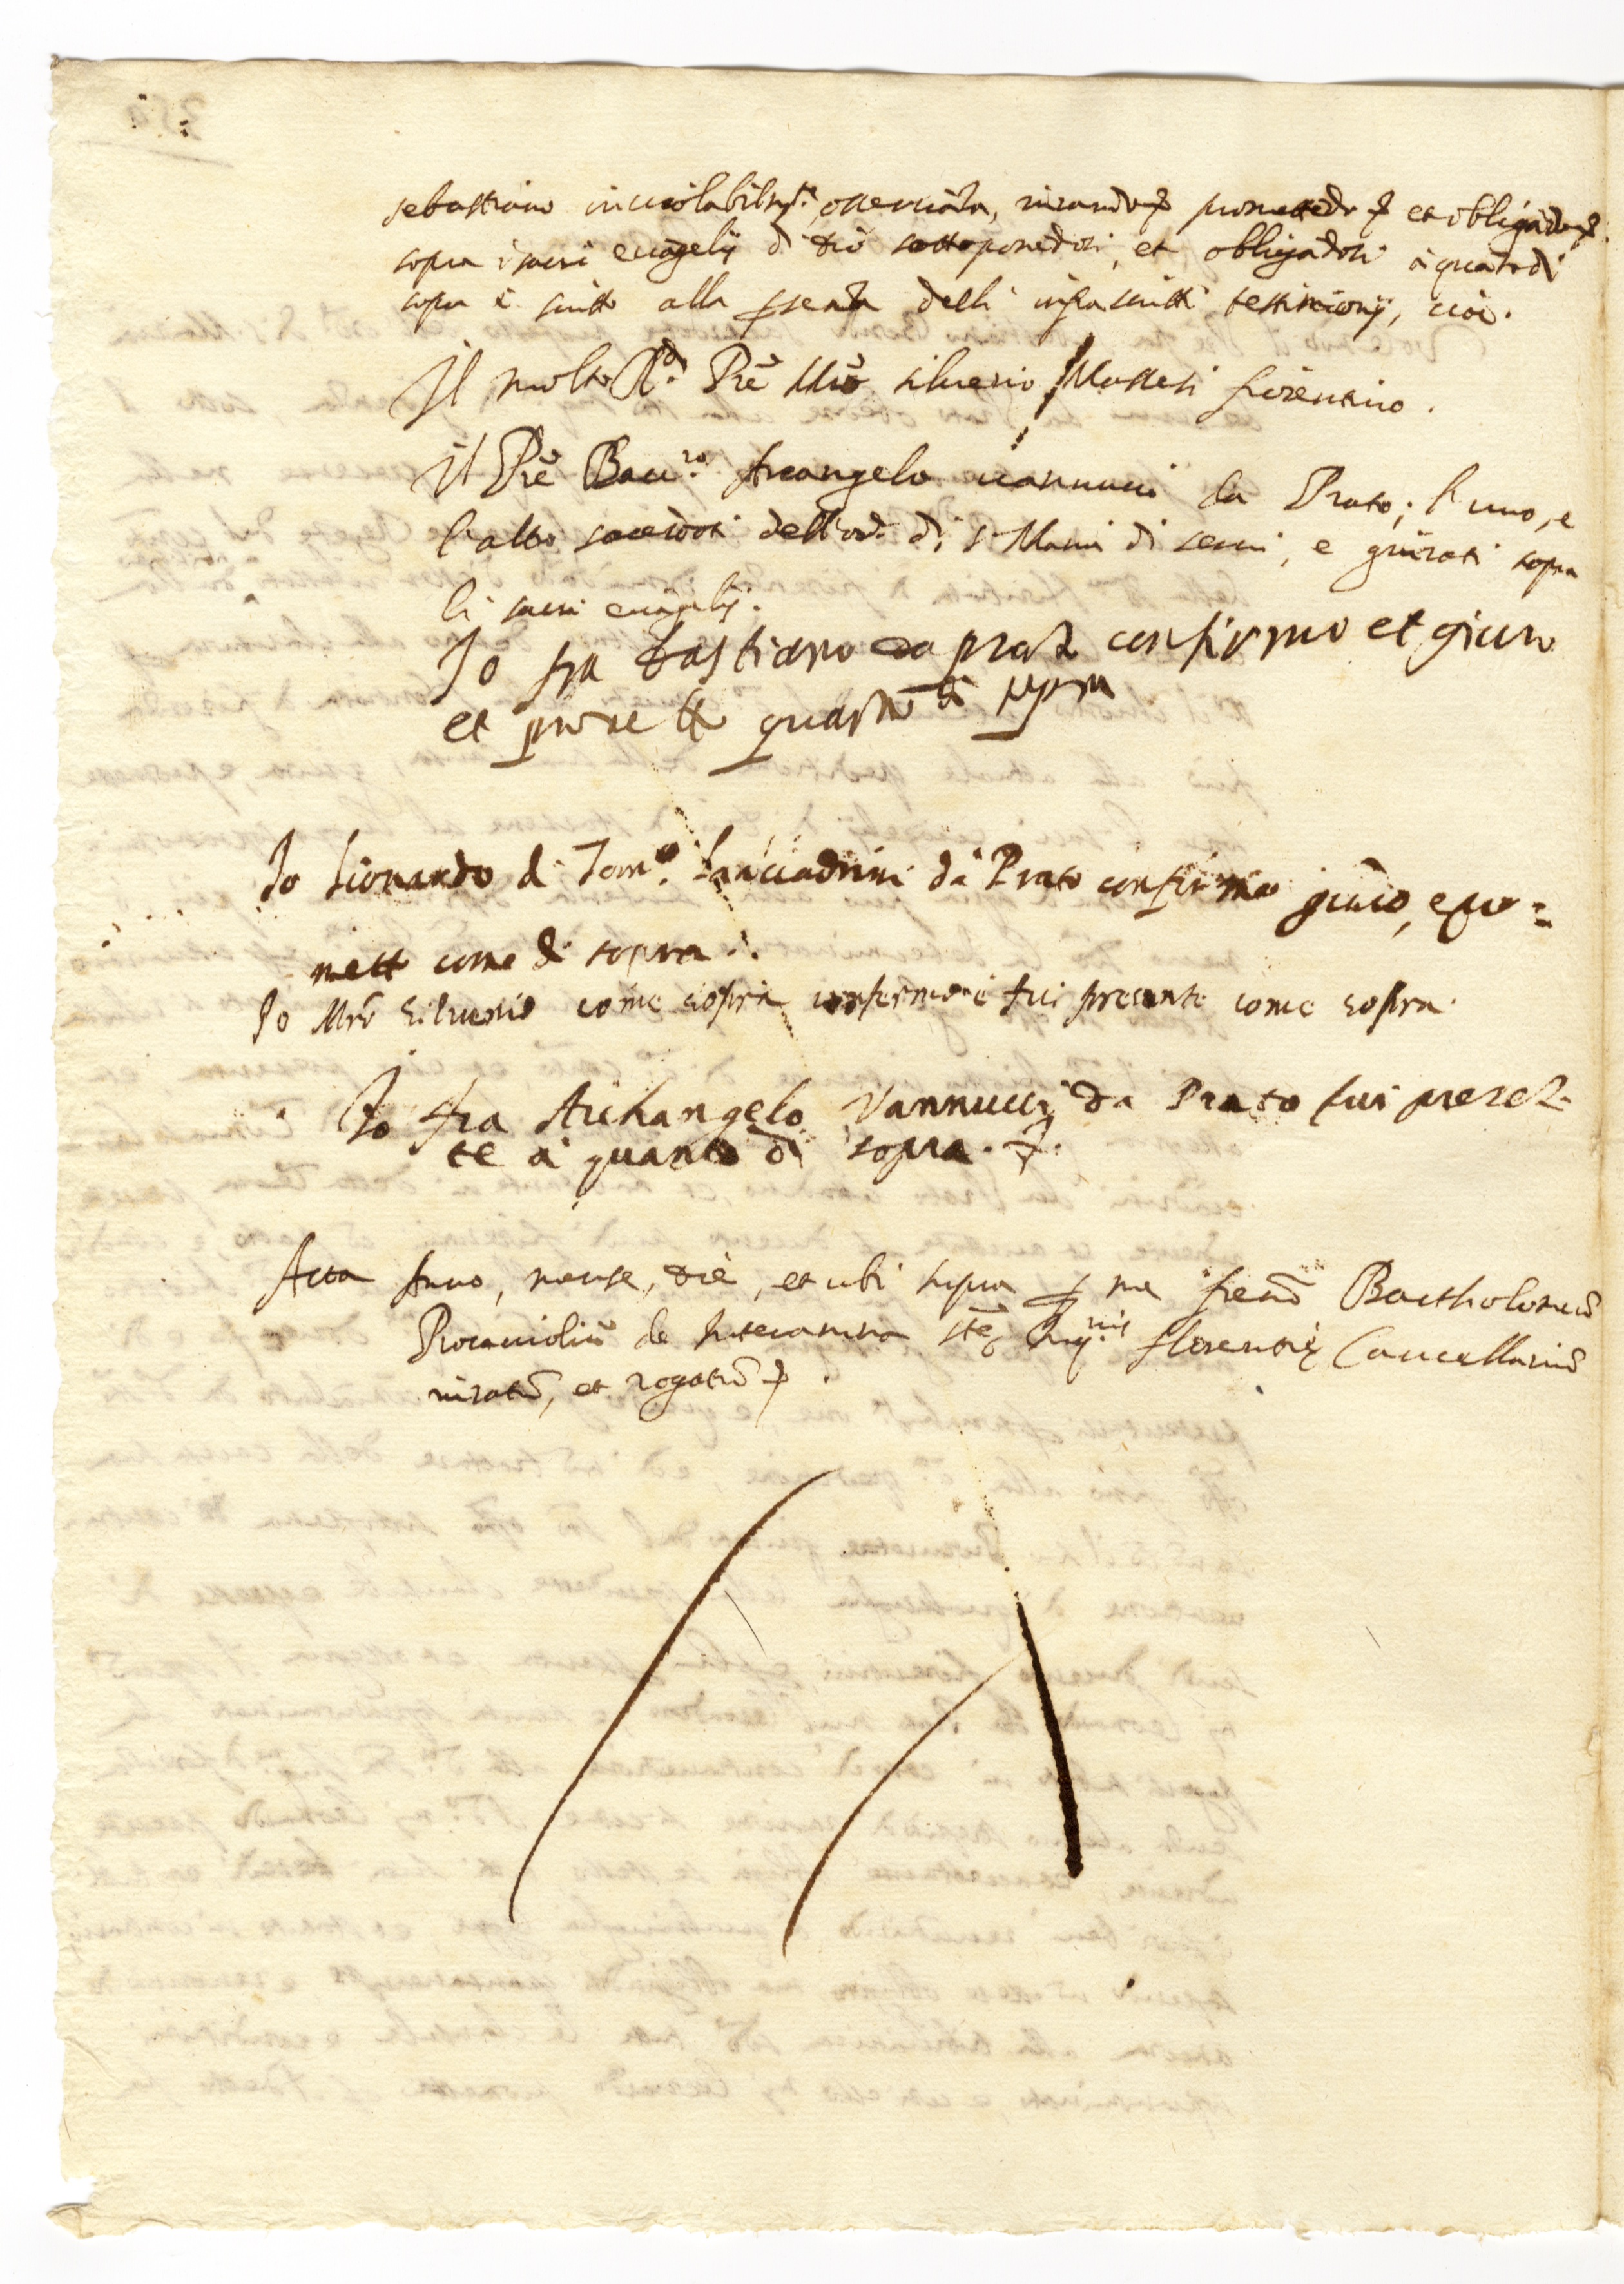 sebastiano inviolabilmte. osservata, iurandosi promettedosi et obligãdosi
sopra i sacri evãgelij di Dio sottoponedosi, et obligadosi à quãto di
sopra è scritto alla presẽza delli infrascritti testimonij, cioè.
Il molto Rdo. Prẽ Mrõ Silverio Massesi fiorentino.
Il Prẽ Baccro. Arcangelo Vannucci da Prato; l'uno, e
l'altro sacerdoti dell'ord. di S. Maria di servi, e giurati sopra
li sacri evãgelij.
Io fra bastiano da prato confirmo et giuro
et promettto quãto di sopra
Io Lionardo di Tomo. Lanciadrini da Prato confirmo giuro, e pro=
metto come di sopra.
Io Mrõ Silverio come sopra confermo e fui presente come sopra.
Io fra Archangelo Vannucci da Prato fui presen=
te à quanto di sopra.
Acta Anno, mense, die, et ubi supra per me Bartholomeũ
Procacciolũ de Interamna stẽ Inqnis. florentię Cancellariũ
iuratũ, et rogatũ